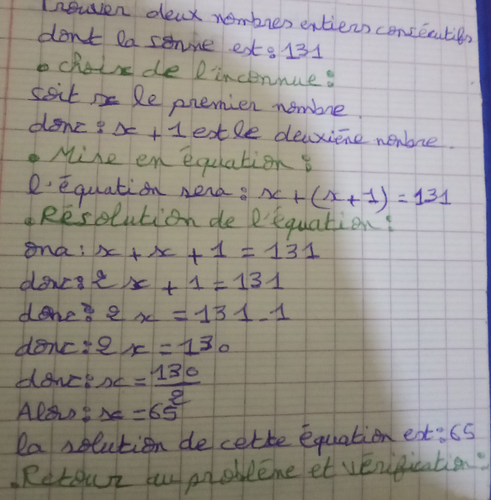 Trouver deux nombres entiers consécutifs
dont la somme est : 131
• choix de l'inconnue :
soit x le premier nombre.
donc : x + 1 est le deuxième nombre.
• Mise en équation :
l'équation sera : x + (x + 1) = 131
• Résolution de l'équation :
ona : x + x + 1 = 131
donc : 2 x + 1 = 131
donc : 2 x = 131 - 1
donc : 2 x = 130
donc : x = 130/2
Alors : x = 65
la solution de cette équation est : 65
• Retour au problème et vérification :